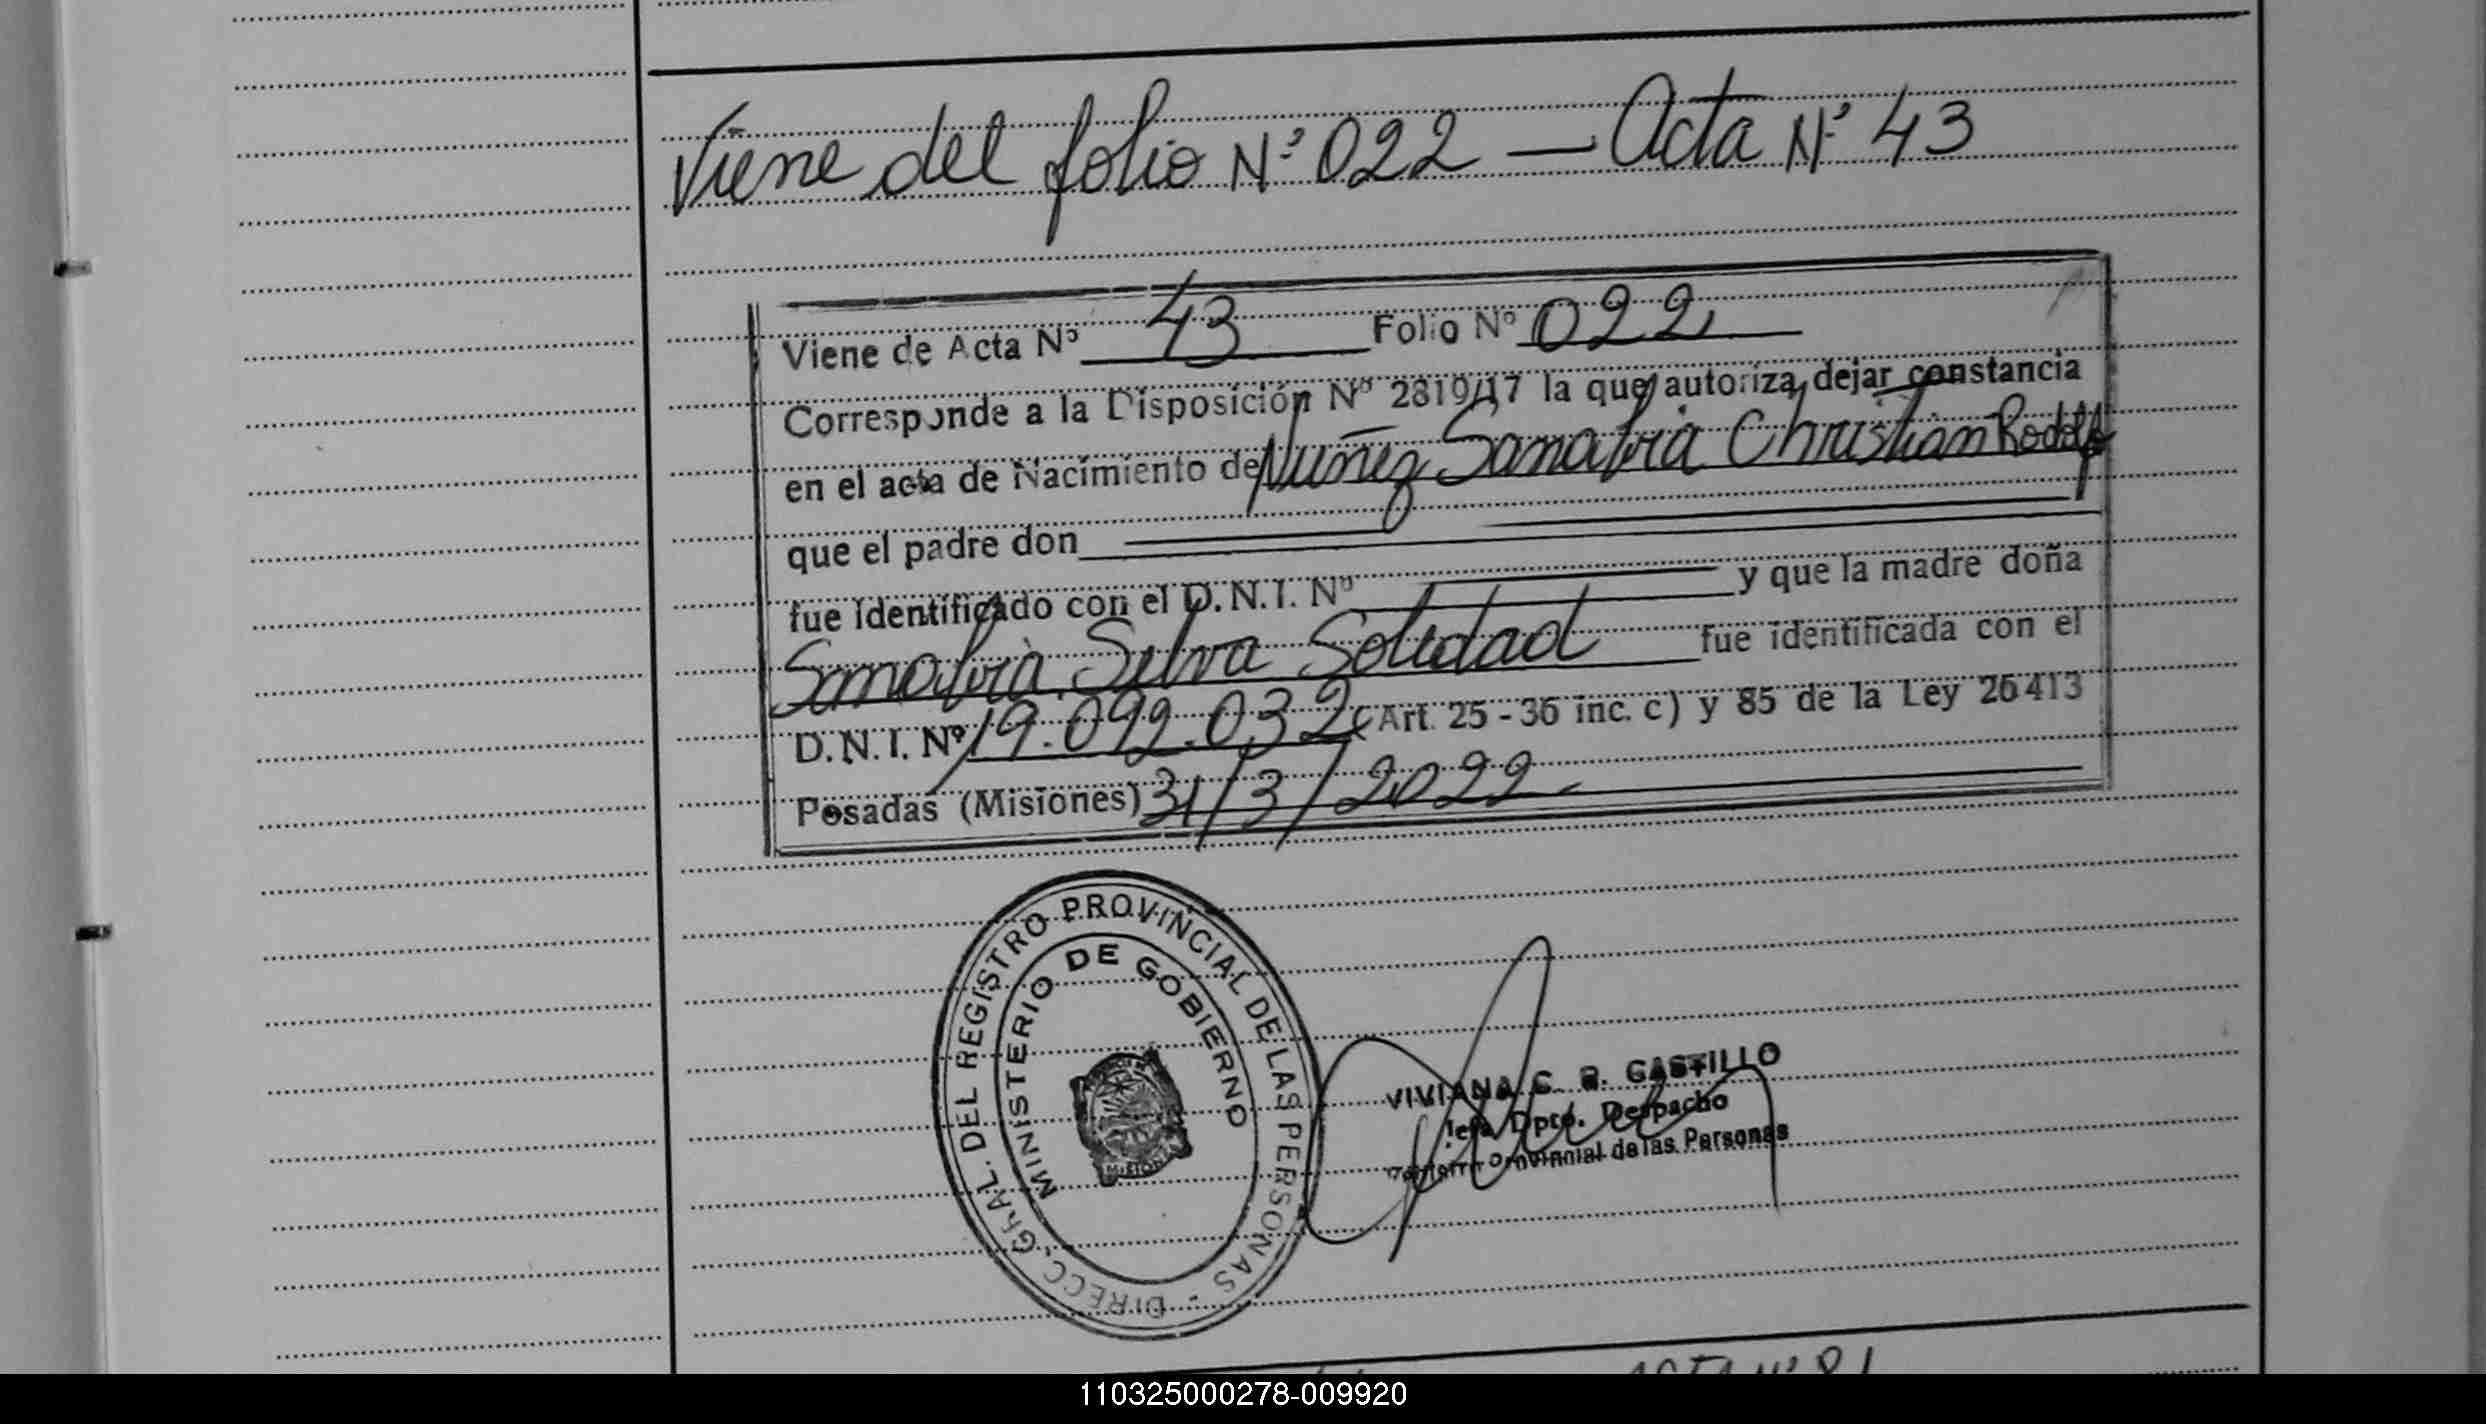 Viene del folio Nº 022 — Acta Nº 43
Viene de Acta Nº 43 Folio Nº 022
Corresponde a la Disposición Nº 2819/17 la que autoriza dejar constancia
en el acta de Nacimiento de Nuñez Sanabria Christian Rodolfo
que el padre don
fue identificado con el D.N.I. Nº y que la madre doña
Sanabria Selva Soledad fue identificada con el
D.N.I. Nº 19.092.032 (Art. 25 - 36 inc. c) y 85 de la Ley 26413
Posadas (Misiones) 31/3/2022
DIRECC. GRAL. DEL REGISTRO PROVINCIAL DE LAS PERSONAS -
MINISTERIO DE GOBIERNO
VIVIANA C. R. CASTILLO
Jefa Dpto. Despacho
Provincial de las Personas
ACTA Nº 81
110325000278-009920